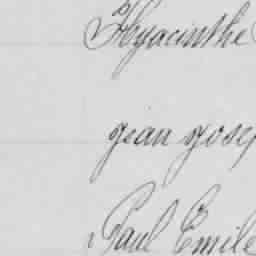 Hyacinthe
jean Josep
Paul Emile